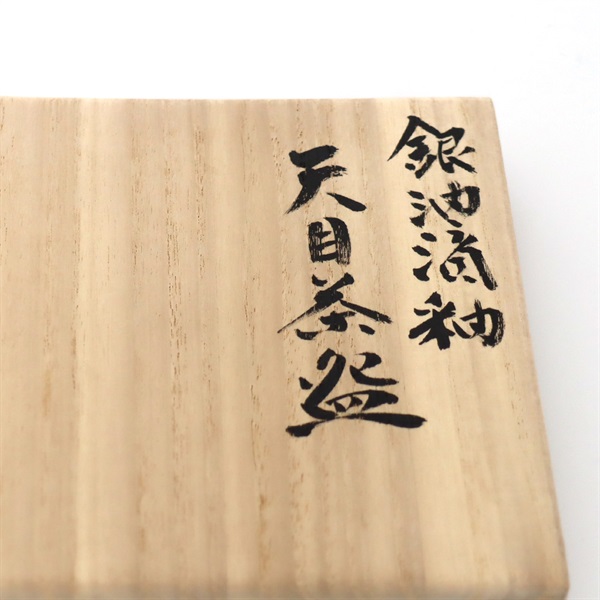 銀油滴釉
天目茶盌